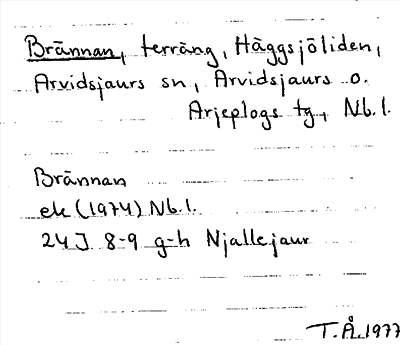 Brännan, terräng, Häggsjöliden,
Arvidsjaurs sn., Arvidsjaurs o.
Arjeplogs tg., Nb.l.
Brännan
ek (1974) Nb.l.
24J 8-9 g-h Njallejaur
T.Å. 1977